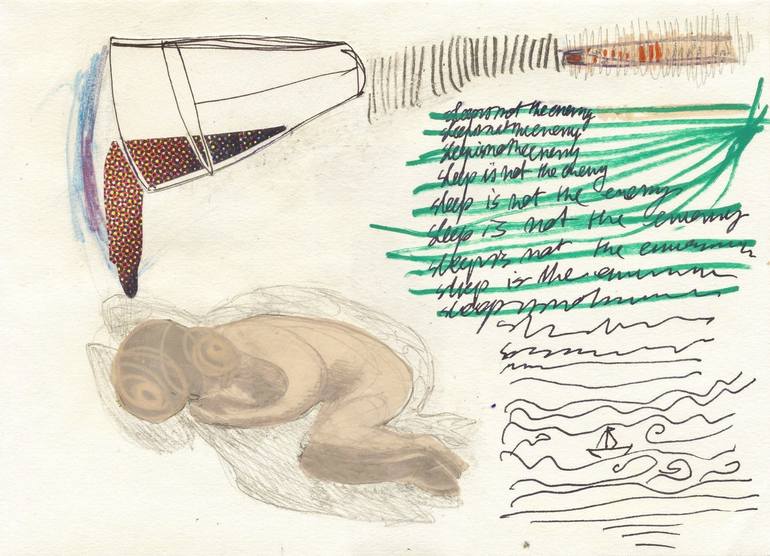 sleep is not the enemy
sleep is not the enemy
sleep is not the enemy
sleep is not the enemy
sleep is not the enemy
sleep is not the enemy
sleep is not the
sleep is the
sleep